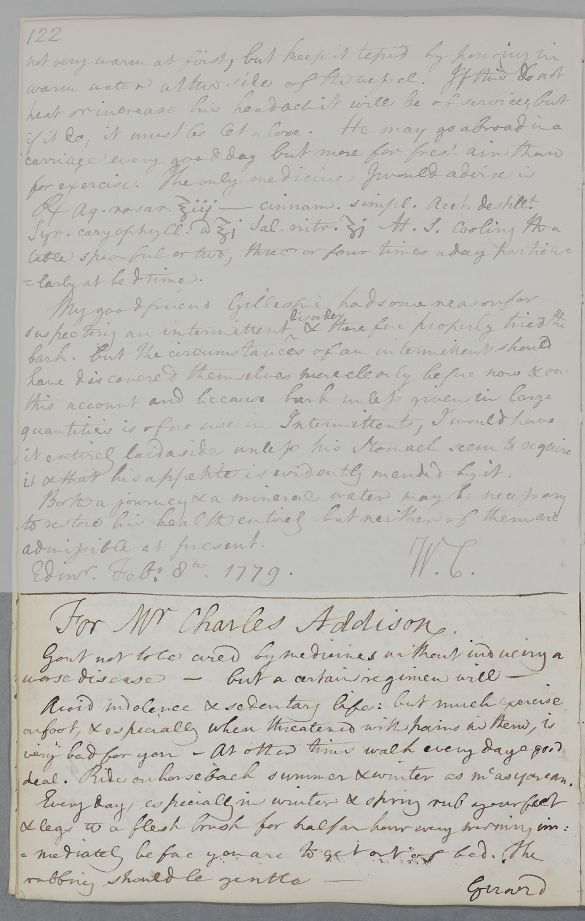 122
not very warm at first, but keep it tepid by pouring in
warm water at the side of the vessel. If this do not
heat or increase his headach it will be of service, but
if it do, it must be let alone. He may go abroad in a
carriage every good day but more for fresh air than
for exercise. The only medicine I would advise is
℞ Aq. rosar. ℥iij — cinnam. simpl. Acet. destill.
Syr. caryophyll. a ℥j Sal. nitr. ʒj M. S. Cooling
table spoonful or two, three or four times a day particu=
=larly at bed time.
My good friend Gillespie had some reason for
suspecting an intermittent disorder & therefore properly tried the
bark. but the circumstances of an intermittent should
have discovered themselves more clearly before now & on
this account and because bark unless given in large
quantities is of no use in Intermittents, I would have
it entirely laid aside unless his Stomach seem to require
it & that his appetite is evidently mended by it.
Both a journey & a mineral water may be necessary
to restore his health entirely but neither of them are
admissible at present.
Edinr. Feb. 8th. 1779. W. C.
For Mr Charles Addison.
Gout not to be cured by medicines without inducing a
worse disease — but a certain regimen will —
Avoid indolence & sedentary life: but much exercise
on foot, & especially when threatened with pains in them, is
very bad for you — At other times walk every day a good
deal. Ride on horseback summer & winter as mch as you can.
Every day, especially in winter & spring rub your feet
& legs wt a flesh brush for half an hour every morning im:
=mediately before you are to get out of bed. The
rubbing should be gentle —